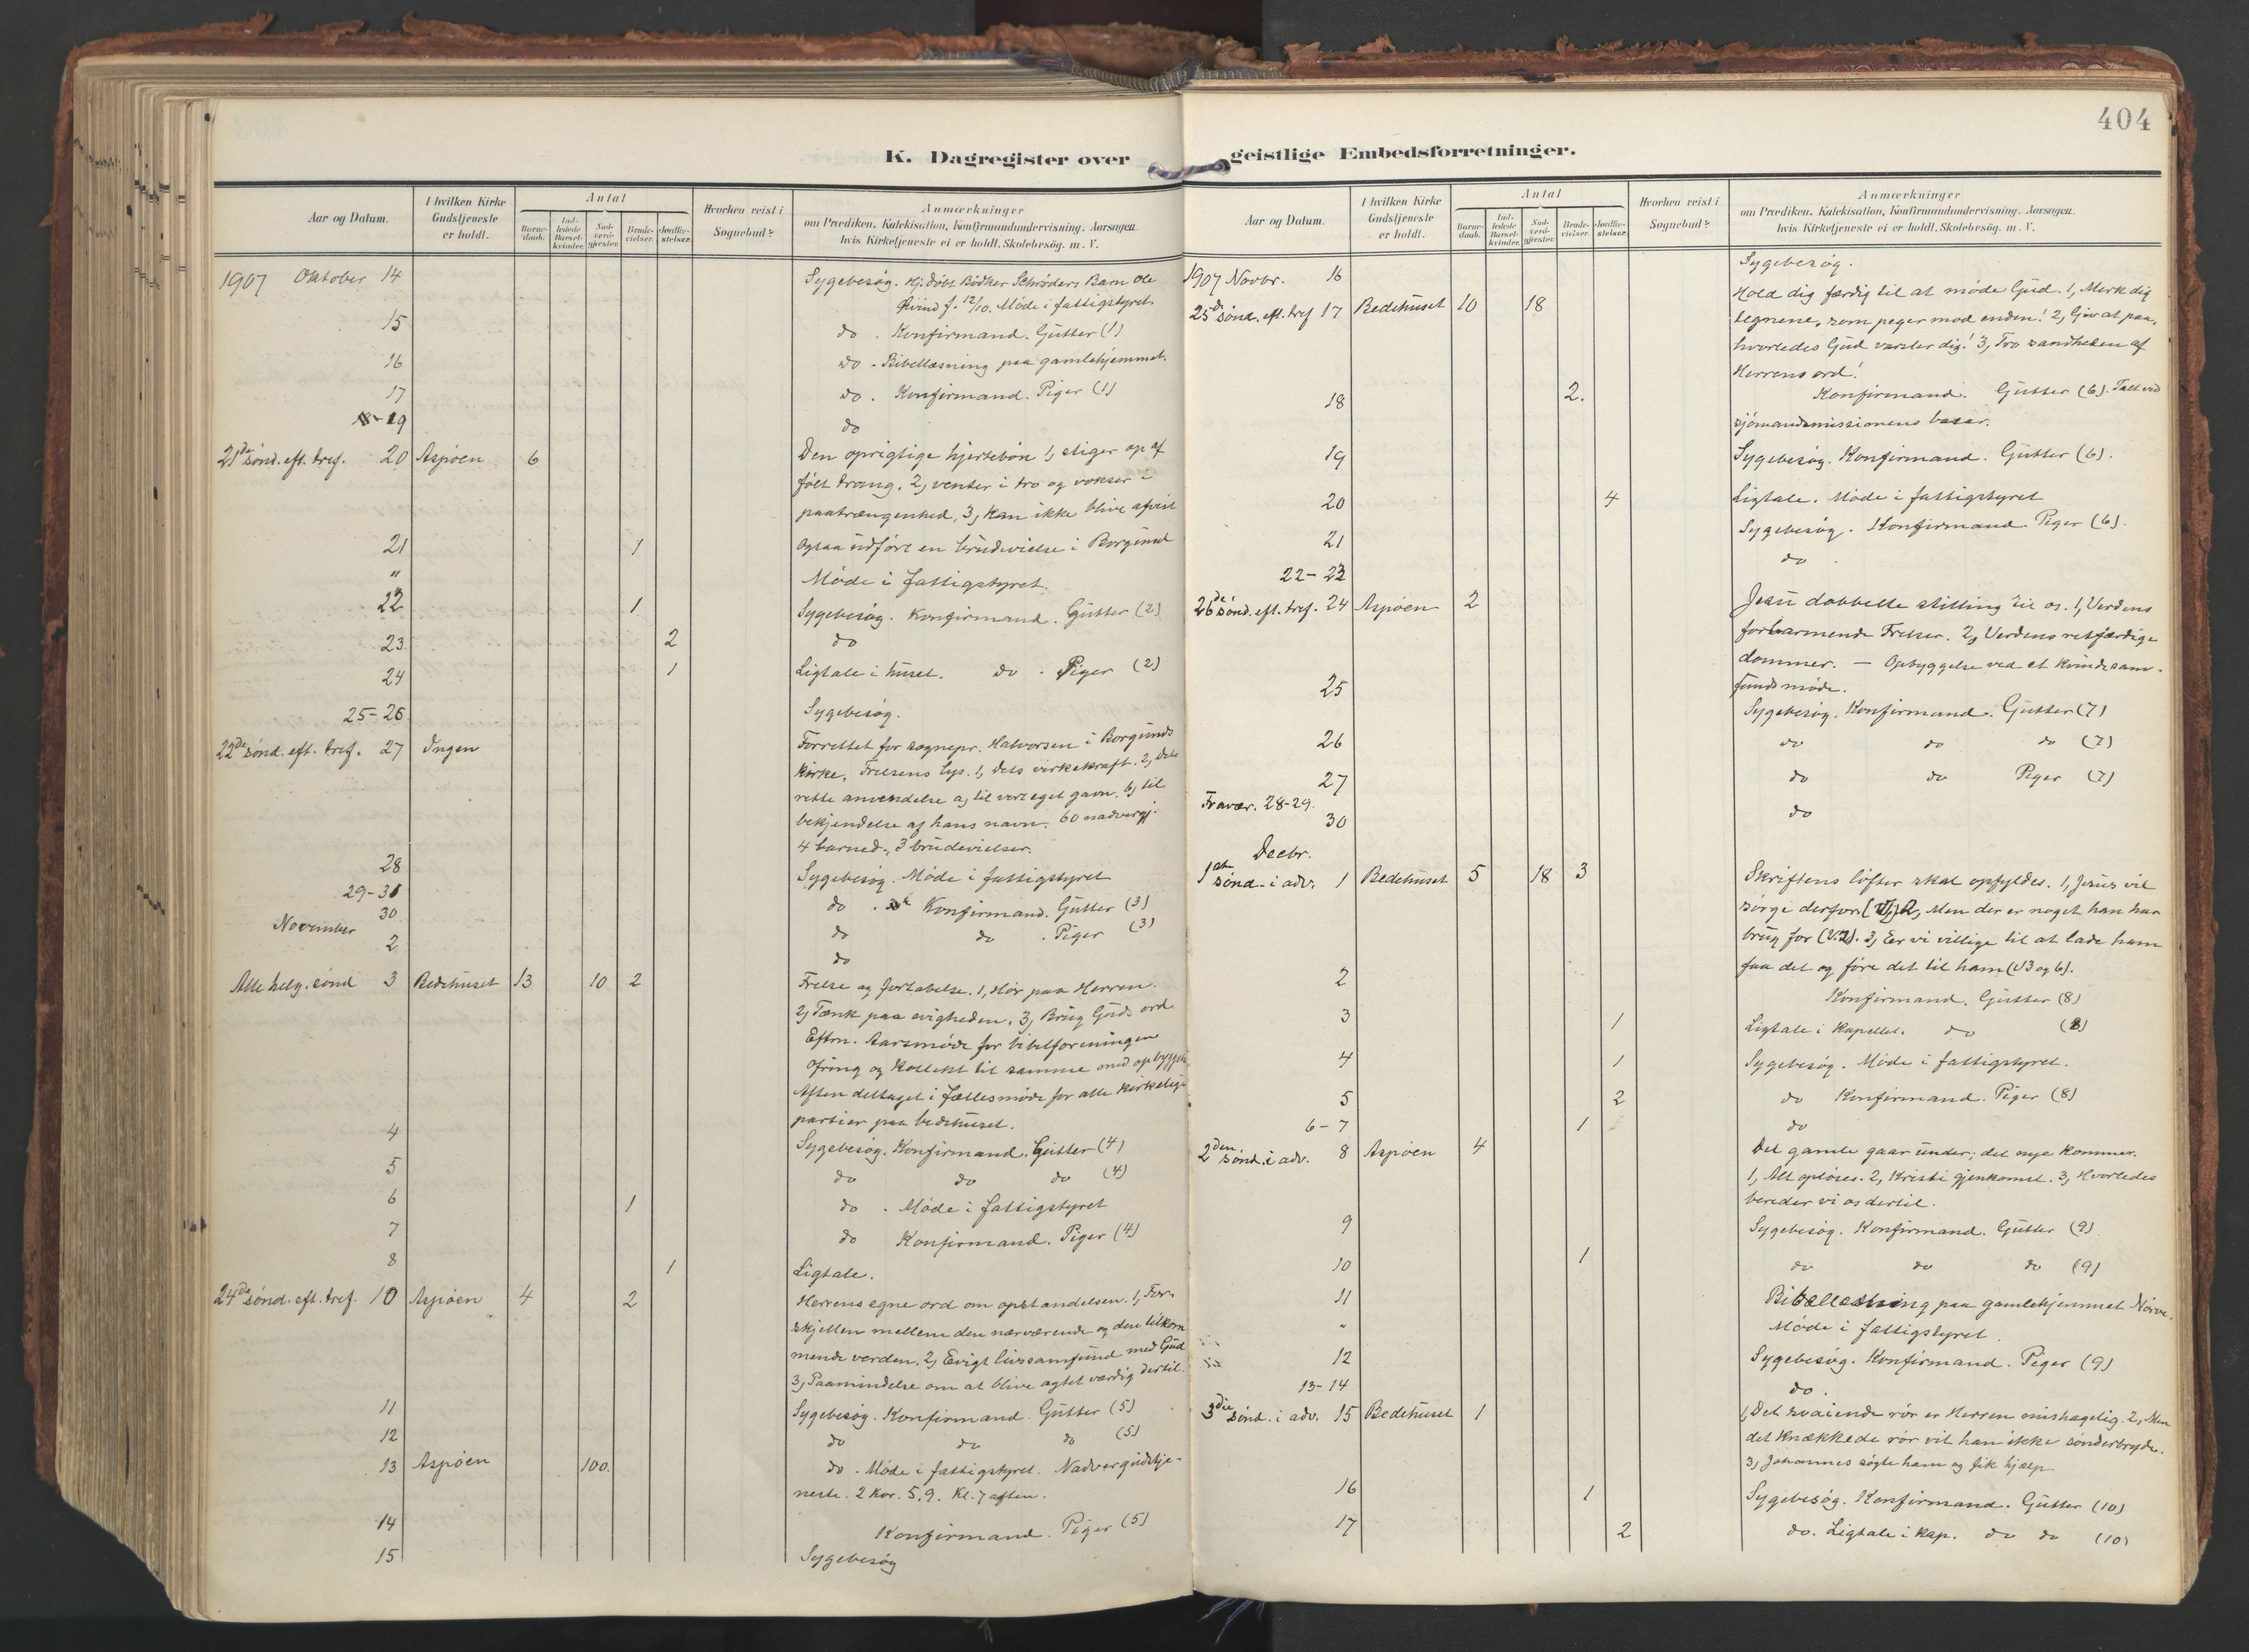 404
K. Dagregister over geistlige Embedsforretninger.
Aar og Datum.
I hvilken Kirke Gudstjeneste er holdt.
Antal
Barne-daab.
Ind-ledede Barsel-kvinder.
Nad-verd-gjester.
Brude-vielser.
Jordfæ-stelser.
Hvorhen reist i Sognebud?
Anmærkninger
om Prædiken, Katekisation, Konfirmandundervisning. Aarsagen,
hvis Kirketjeneste ei er holdt. Skolebesög. m. V.
1907 Oktober 14 Sygebesög. Hj. døbt Bødker Schrøders Barn Ole
Øivind f. 12/10. Møde i fattigstyret.
15 do . Konfirmand. Gutter (1)
16 do . Bibellæsning paa gamlehjemmet.
17 do . Konfirmand. Piger (1)
18-19 do
21de sønd. eft. tref. 20 Aspøen 6 Den oprigtige hjertebøn 1, stiger op af
følt trang. 2, venter i tro og vokser i
paatrængenhed, 3, Kan ikke blive afvist
21 1 Ogsaa udført en brudevielse i Borgund
" Møde i fattigstyret.
22 1 Sygebesøg. Konfirmand. Gutter (2)
23 2 do
24 1 Ligtale i huset. do . Piger (2)
25-26 Sygebesøg.
22de sønd. eft. tref. 27 Ingen Forrettet for sognepr. Halvorsen i Borgunds
Kirke. Frelsens lys. 1, Dets virkekraft. 2, Dets
rette anvendelse a, til vort eget gavn. b, til
bekjendelse af hans navn. 60 nadvergj.
4 barned., 3 brudevielser.
28 Sygebesøg. Møde i fattigstyret
29-31 do . Konfirmand. Gutter (3)
30 do do . Piger (3)
November
2 do
Alle helg. sønd 3 Bedehuset 13 10 2 Frelse og fortabelse. 1, Hør paa Herren.
2, Tænk paa evigheden. 3, Brug Guds ord
Eftm. Aarsmøde for bibelforeningen
Ofring og Kollekt til samme med opbyggelse
Aften deltaget i fællesmøde for alle kirkelige
partier paa bedehuset.
4 Sygebesøg. Konfirmand. Gutter (4)
5 do do do (4)
6 1 do . Møde i fattigstyret
7 do Konfirmand. Piger (4)
8 1 Ligtale.
24de sønd. eft. tref. 10 Aspøen 4 2 Herrens egne ord om opstandelsen. 1, For-
skjellen mellem den nærværende og den tilkom
mende verden. 2, Evigt livssamfund med Gud
3, Paamindelse om at blive agtet værdig dertil.
11 Sygebesøg. Konfirmand. Gutter (5)
12 do do do (5)
13 Aspøen 100. do . Møde i fattigstyret. Nadvergudstje-
neste. 2 Kor. 5.9. Kl. 7 aften.
14 Konfirmand. Piger (5)
15 Sygebesøg
Aar og Datum.
I hvilken Kirke Gudstjeneste er holdt.
Antal
Barne-daab.
Ind-ledede Barsel-kvinder.
Nad-verd-gjester.
Brude-vielser.
Jordfæ-stelser.
Hvorhen reist i Sognebud?
Anmærkninger
om Prædiken, Katekisation, Konfirmandundervisning. Aarsagen,
hvis Kirketjeneste ei er holdt. Skolebesög. m. V.
1907 Novbr. 16 Sygebesøg.
25de sønd. eft. tref 17 Bedehuset 10 18 Hold dig færdig til at møde Gud. 1, Merk dig
tegnene, som peger mod enden! 2, Giv at paa,
hvorledes Gud varsler dig! 3, Tro sandheden af
Herrens ord!
18 2. Konfirmand. Gutter (6). Talt ved
sjømandsmissionens basar.
19 Sygebesøg. Konfirmand. Gutter (6).
20 4 Ligtale. Møde i fattigstyret
21 Sygebesøg. Konfirmand. Piger (6).
22-23 do .
26de sønd. eft. tref. 24 Aspøen 2 Jesu dobbelte stilling til os. 1, Verdens
forbarmende Frelser. 2, Verdens retfærdige
dommer. — Opbyggelse ved et kvindesam-
fundsmøde.
25 Sygebesøg. Konfirmand. Gutter (7)
26 do do do (7)
27 do do Piger (7)
Fravær. 28-29.
30 do
Decbr.
1ste sønd. i adv. 1 Bedehuset 5 18 3 Skriftens løfter skal opfyldes. 1, Jesus vil
sørge derfor 2, Men der er noget han har
brug for (V.2). 3, Er vi villige til at lade ham
faa det og føre det til ham (V3 og 6).
2 Konfirmand. Gutter (8)
3 1 Ligtale i Kapellet. do (8)
4 1 Sygebesøg. Møde i fattigstyret.
5 2 do Konfirmand. Piger (8)
6-7 1 do
2den sønd. i adv. 8 Aspøen 4 Det gamle gaar under; det nye kommer.
1, Alt opløses. 2, Kristi gjenkomst. 3, Hvorledes
bereder vi os dertil.
9 Sygebesøg. Konfirmand. Gutter (9)
10 1 do do do (9)
11 Bibellæsning paa gamlehjemmet Nørve.
" Møde i fattigstyret.
12 Sygebesøg. Konfirmand. Piger (9)
13-14 do.
3die sønd. i adv. 15 Bedehuset 1 1, Det svaiende rør er Herren mishagelig. 2, Men
det knækkede rør vil han ikke sønderbryde.
3, Johannes søgte ham og fik hjælp.
16 1 Sygebesøg. Konfirmand. Gutter (10)
17 2 do. Ligtale i kap. do do (10)